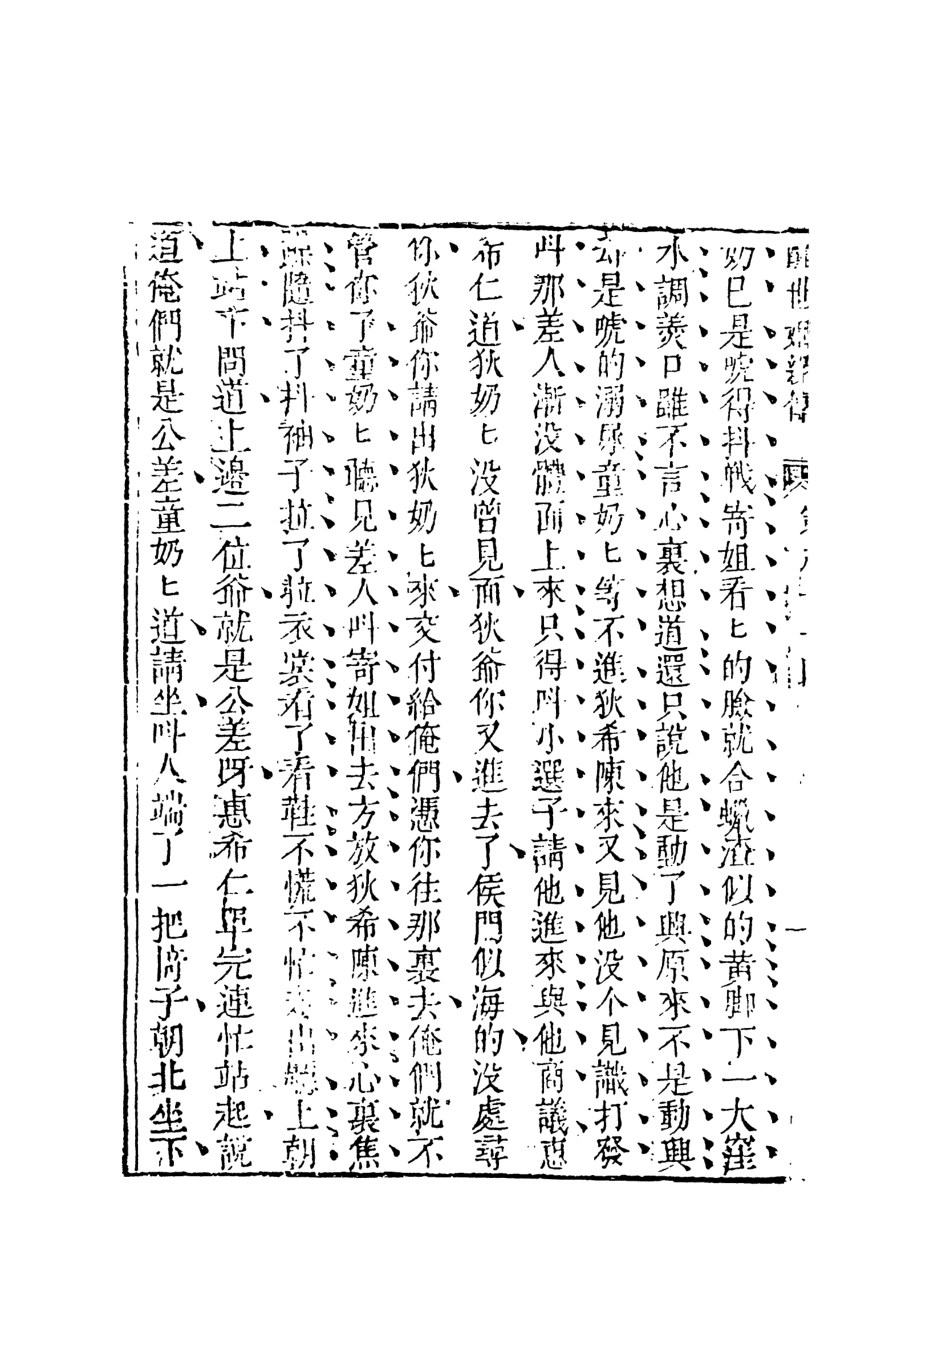 世姻緣傳 第
奶已是唬得抖戰寄姐看匕的臉就合蠟渣似的黃脚下一大窪
水調羹口雖不言心裏想道還只說他是動了興原來不是動興
却是唬的溺尿童奶匕等不進狄希陳來又見他没个見識打發
呌那差人漸没體面上來只得呌小選子請他進來與他商議惠
希仁道狄奶匕没曾見面狄爺你又進去了侯門似海的没處尋
你狄爺你請出狄奶匕來交付給俺們憑你往那裏去俺們就不
管你了童奶匕聽見差人呌寄姐出去方放狄希陳進來心裏焦
隨抖了抖袖子拉了拉衣裳看了看鞋不慌不忙走出廳上朝
上站下問道上邊二位爺就是公差呀惠希仁單完連忙站起說
道俺們就是公差童奶匕道請坐呌人端了一把椅子朝北坐下